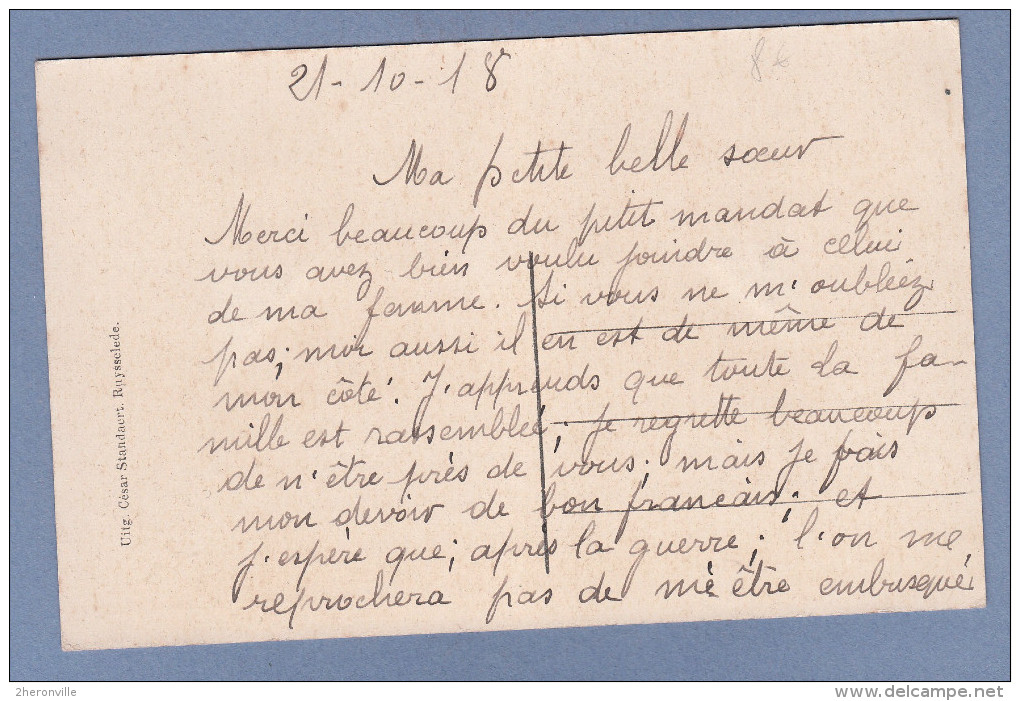 21-10-18
86
Ma petite belle sœur
Merci beaucoup du petit mandat que
vous avez bien voulu joindre à celui
de ma femme. Si vous ne m'oubliez
pas; moi aussi il en est de même de
mon côté. J'apprends que toute la fa-
mille est rassemblée; je regrette beaucoup
de n'être près de vous; mais je fais
mon devoir de bon français; et
j'espère que; après la guerre; l'on me
reprochera pas de m'être embusqué
Uitg. César Standaert. Ruysselede.
2heronville
http://www.delcampe.net